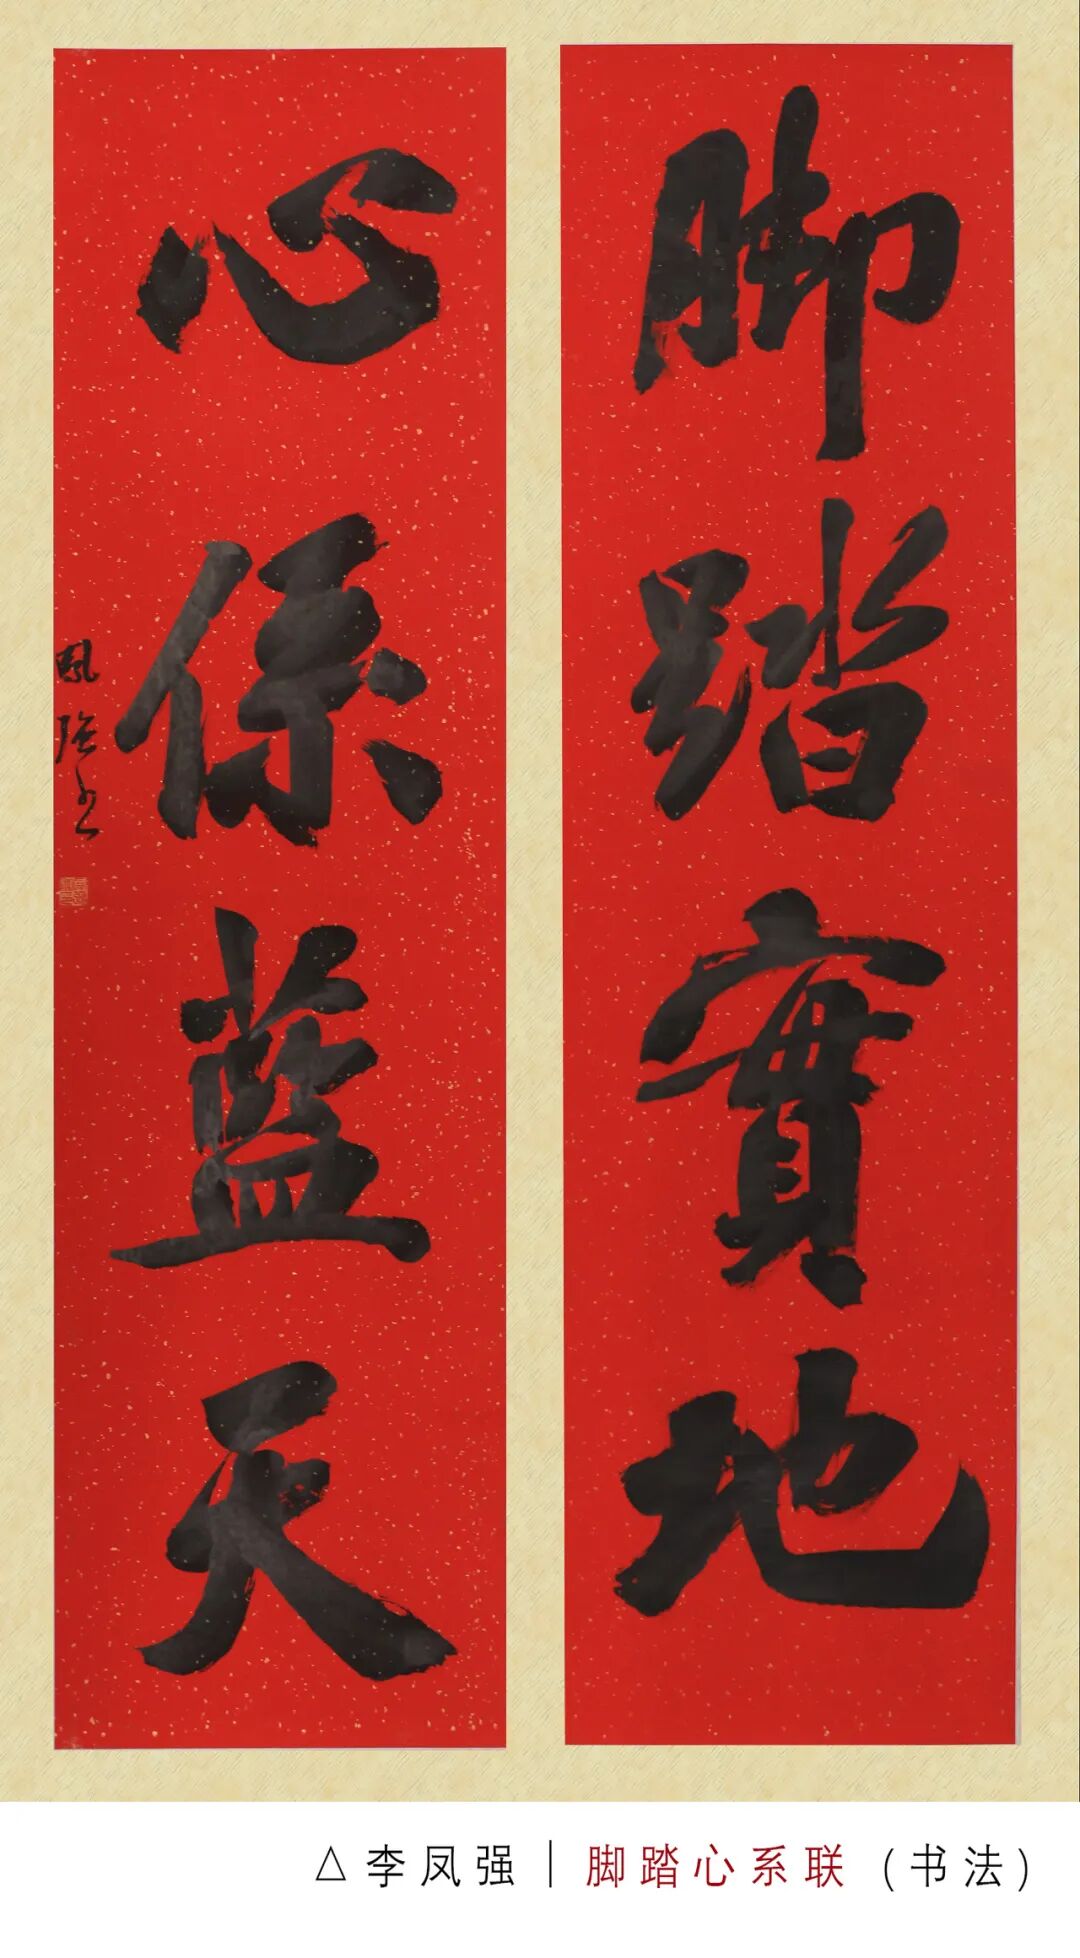 脚踏實地
心係藍天
鳳強書
△李凤强｜脚踏心系联（书法）